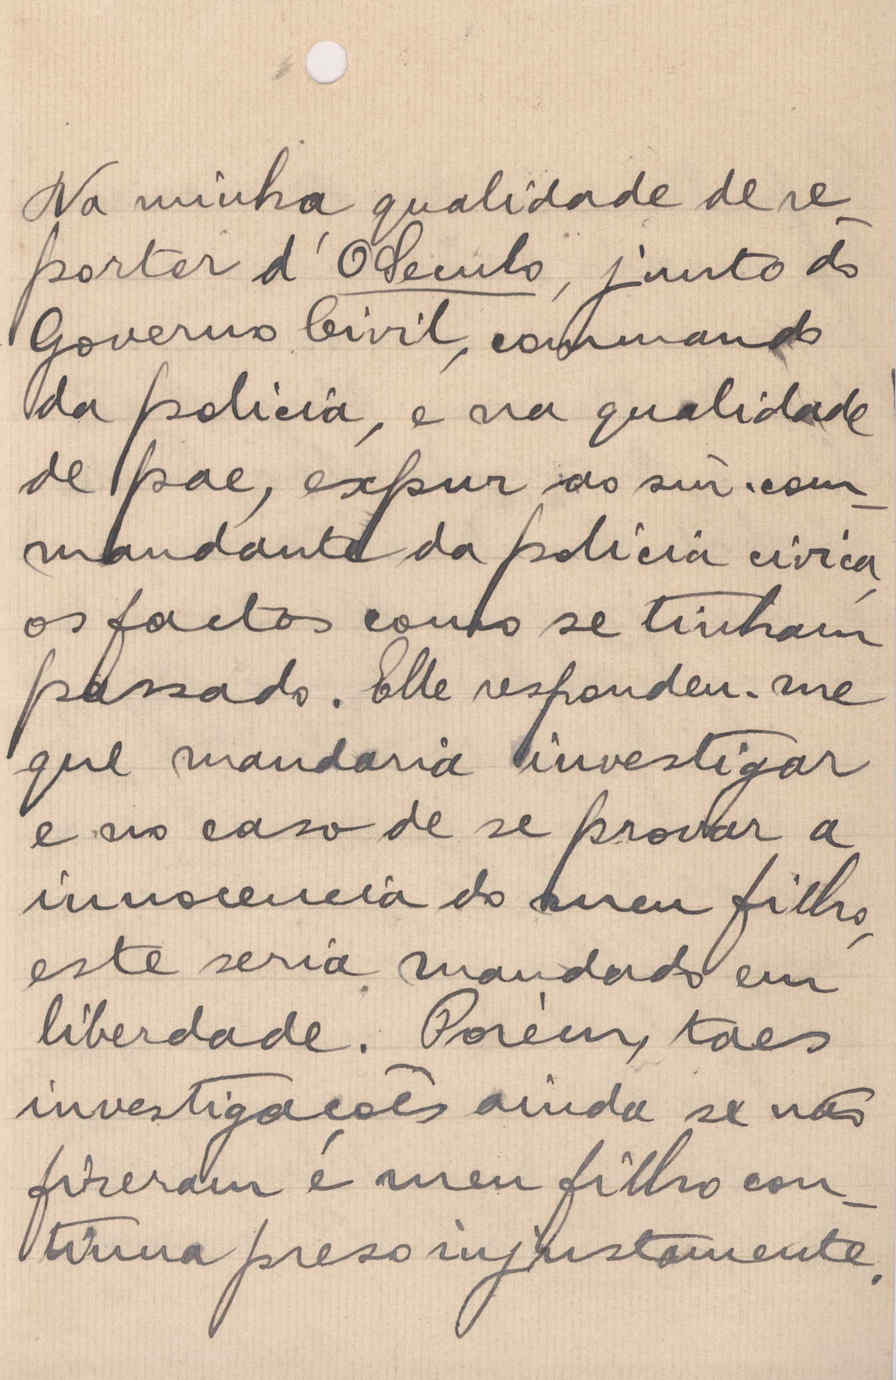 Na minha qualidade de re
porter d'O Seculo, junto do
Governo Civil, commando
da policia, e na qualidade
de pae, expuz ao snr. com-
mandante da policia civica,
os factos como se tinham
passado. Elle respondeu-me
que mandaria investigar
e no caso de se provar a
innocencia do meu filho,
este seria mandado em
liberdade. Porém, taes
investigações ainda se não
fizeram e meu filho con-
tinua preso injustamente.